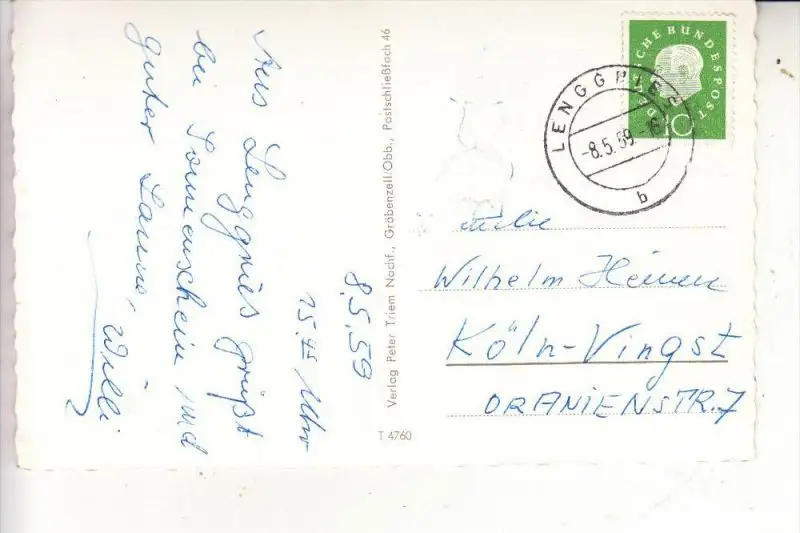 8.5.59
15.45 Uhr
Aus Lenggries grüßt
bei Sonnenschein und
guter Laune, Willi
Verlag Peter Triem Nachf., Gröbenzell/Obb., Postschließfach 46
T 4760
DEUTSCHE BUNDESPOST
10
LENGGRIES
-8.5.59.-6
b
Familie
Wilhelm Heinen
Köln-Vingst
ORANIENSTR. 7